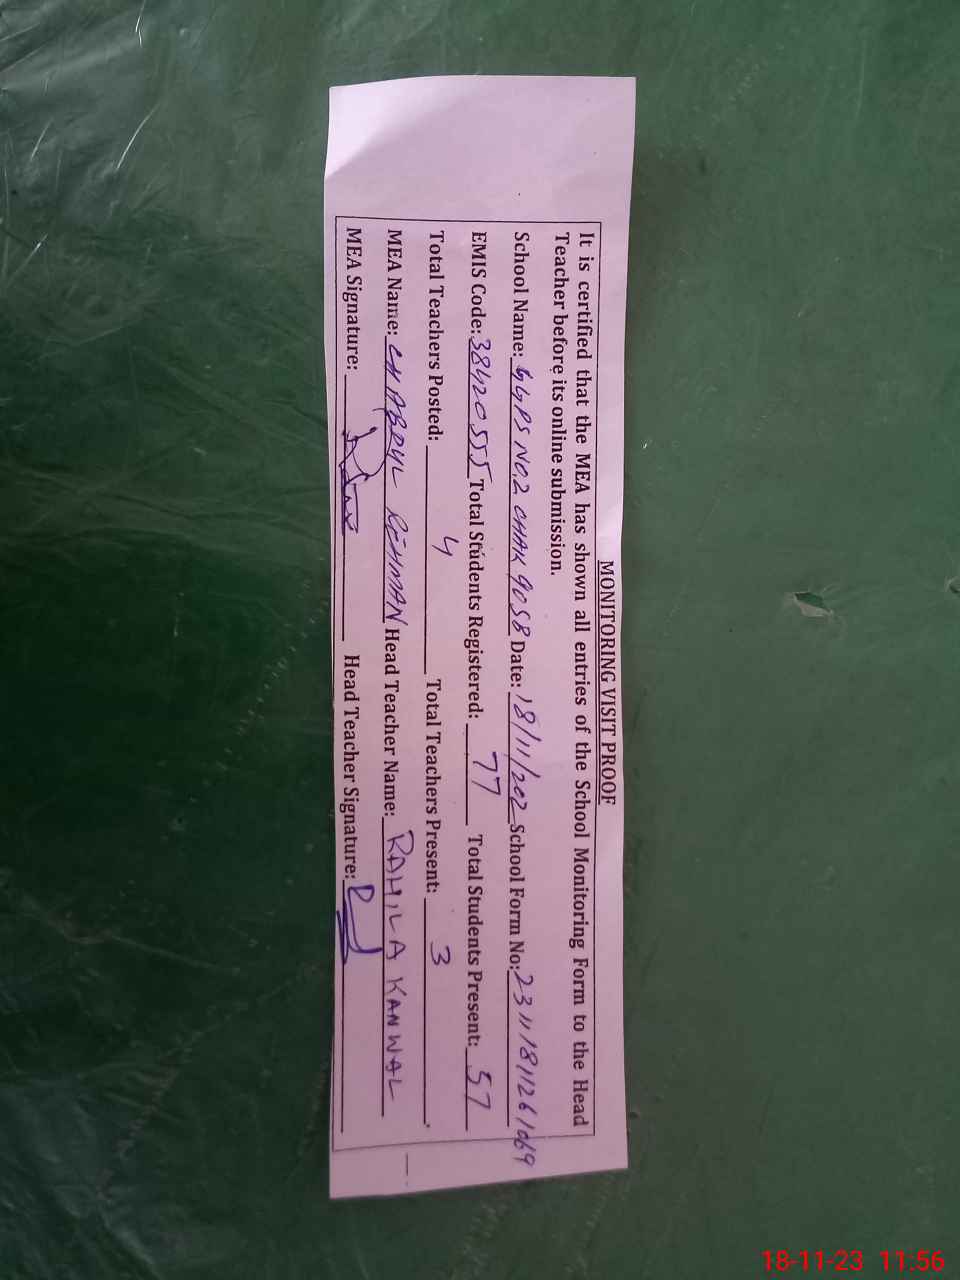 MONITORING VISIT PROOF
It is certified that the MEA has shown all entries of the School Monitoring Form to the Head
Teacher before its online submission.
School Name: GGPS NO.2 CHAK 90SB Date: 18/11/202 School Form No: 23111811261069
EMIS Code: 38420555 Total Students Registered: 77 Total Students Present: 57
Total Teachers Posted: 4 Total Teachers Present: 3
MEA Name: CH ABDUL REHMAN Head Teacher Name: RAHILA KANWAL
MEA Signature: Head Teacher Signature:
18-11-23 11:56